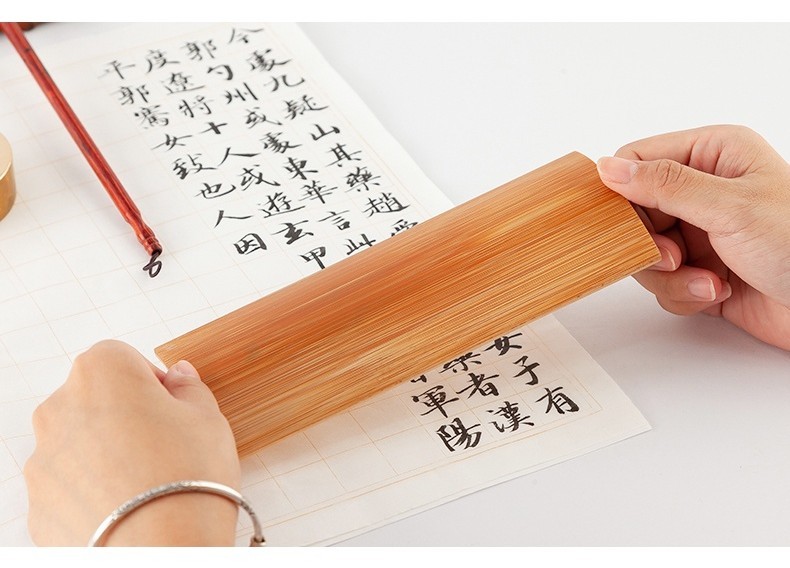 今處九疑山其藥趙女子有
郭勺州或處東華言此藥者漢
度遼將十人或遊玄甲軍陽
平郭騫女致也人因